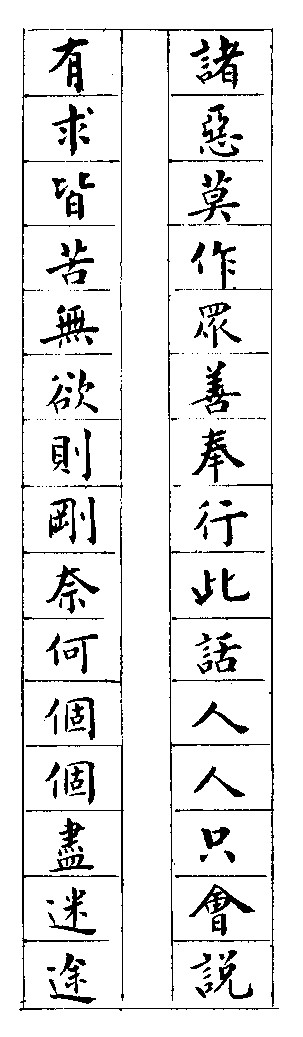 諸惡莫作眾善奉行此話人人只會說
有求皆苦無欲則剛奈何個個盡迷途